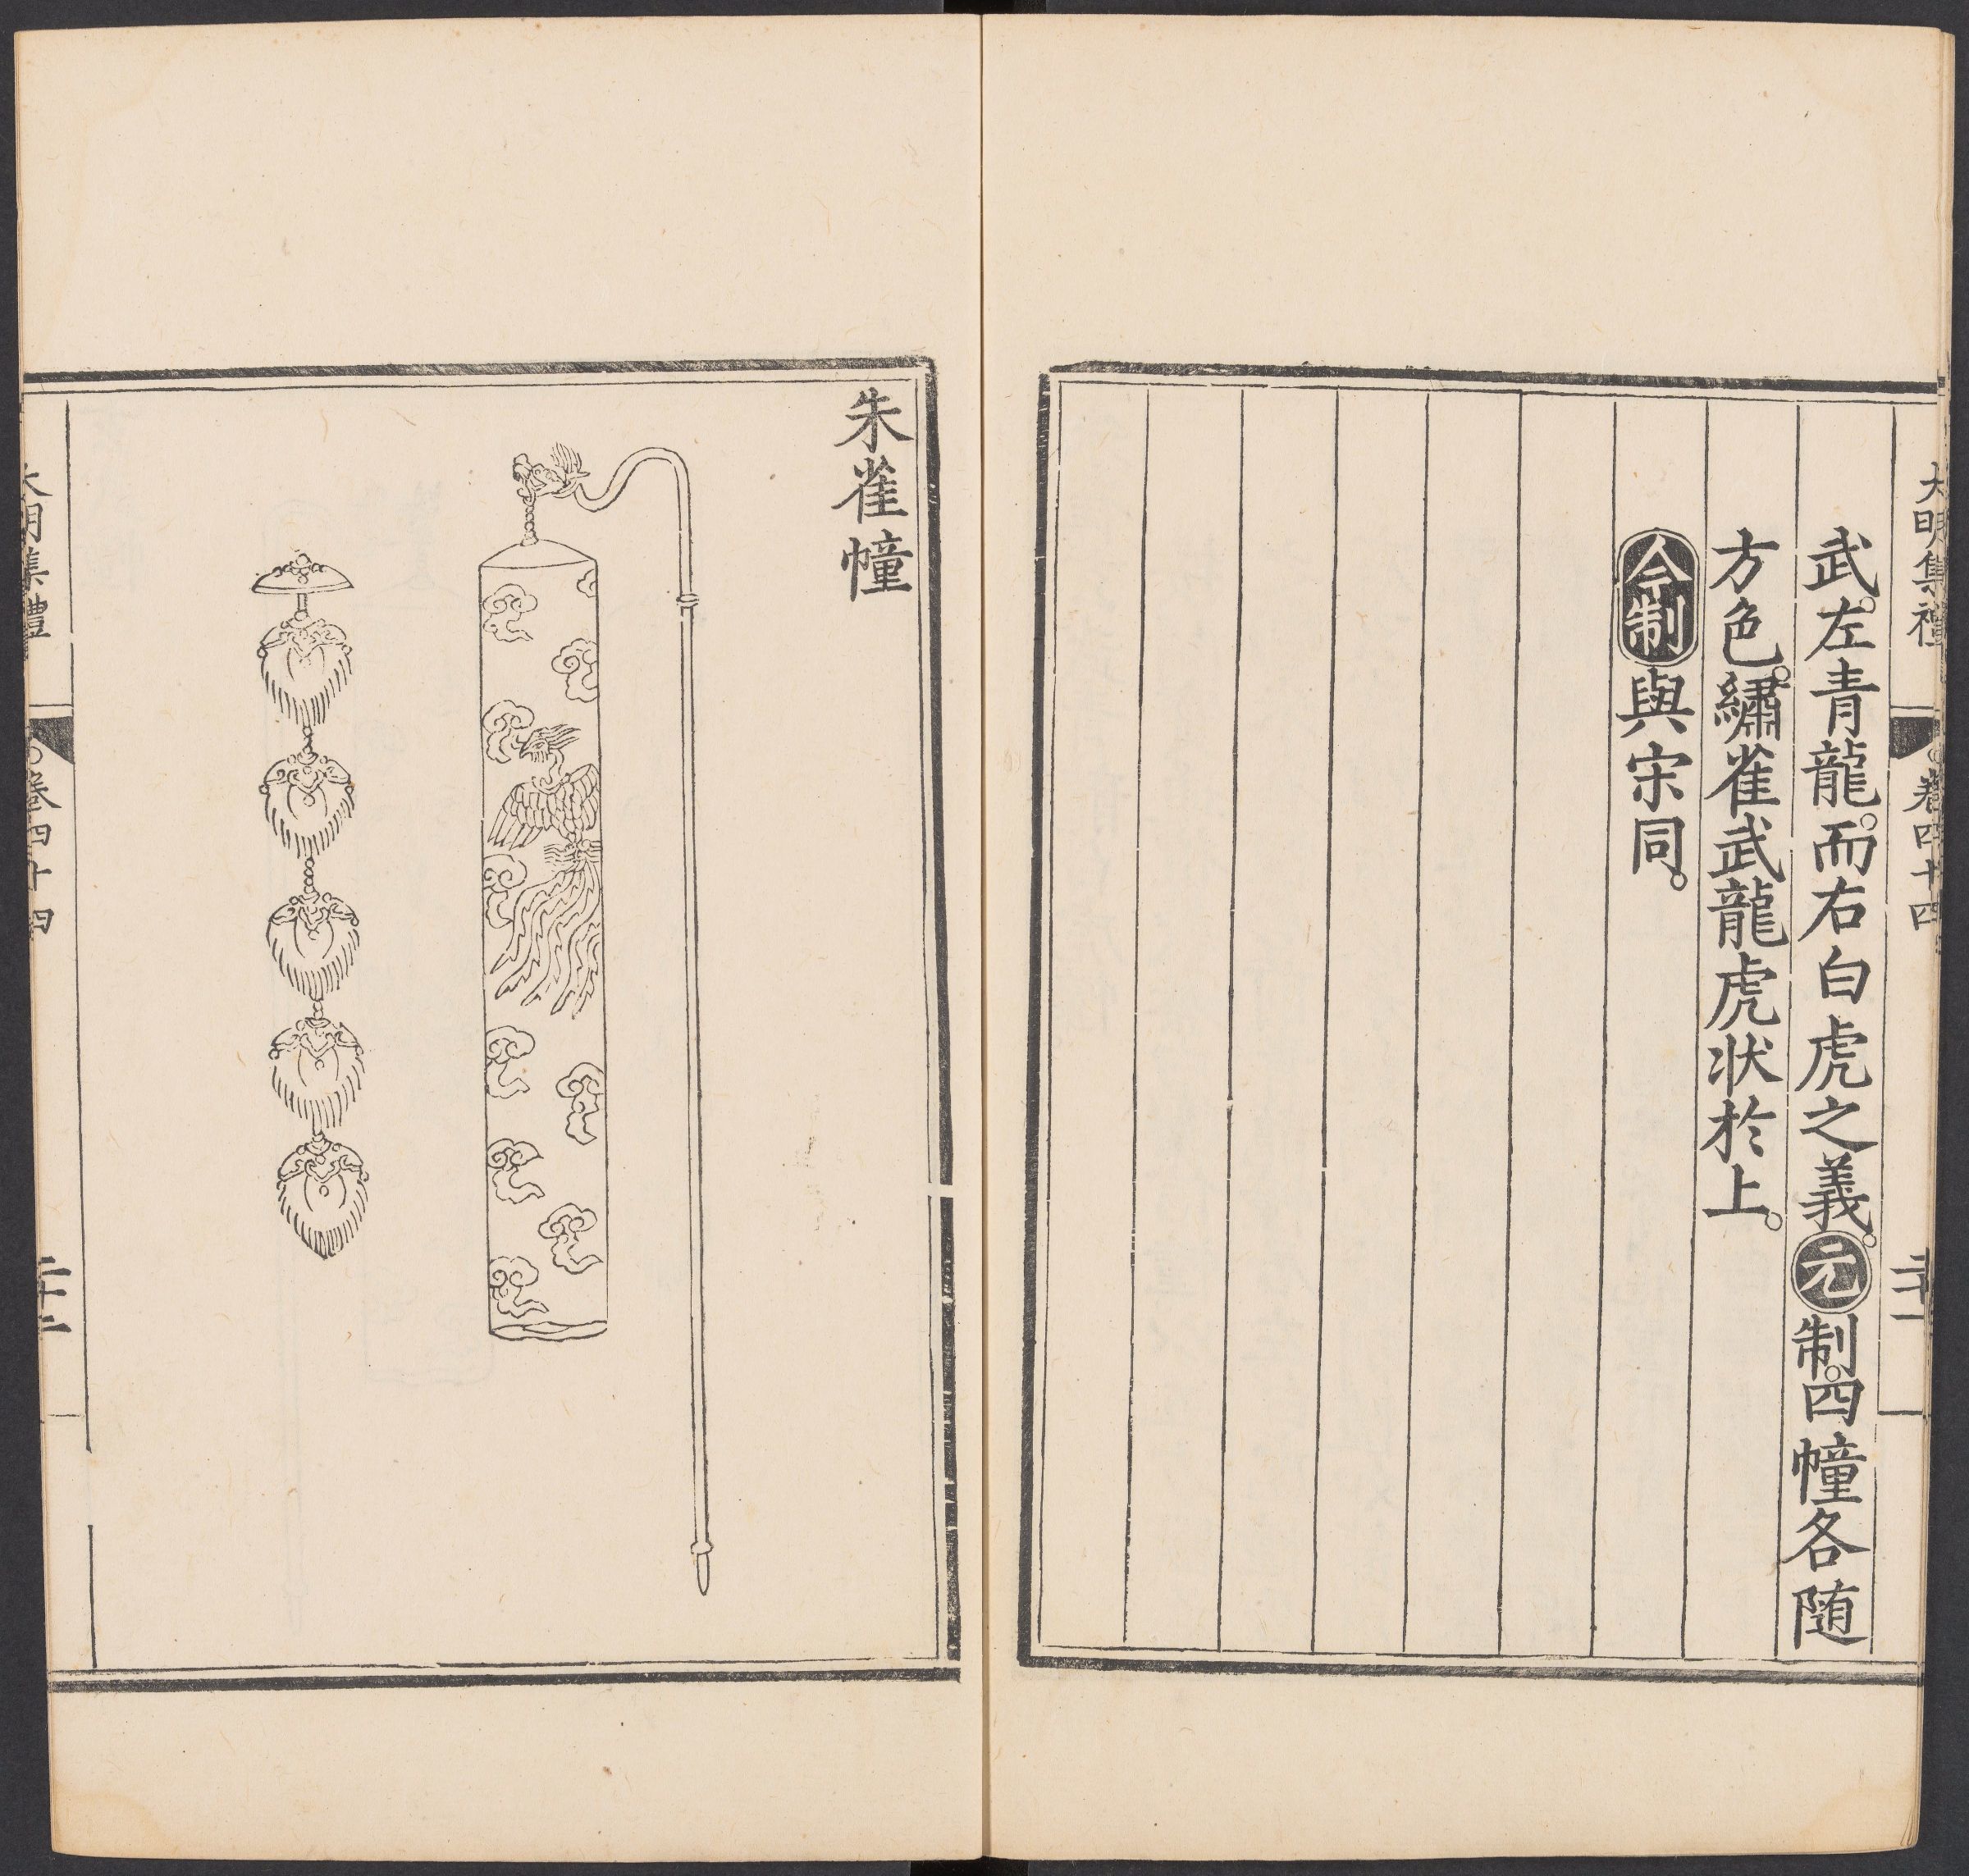 大明集禮
卷四十四
二十一
武。左青龍。而右白虎之義。元制。四幢各随
方色。繡雀武龍虎状於上。
令制與宋同。
朱雀幢
大明集禮
卷四十四
二十二